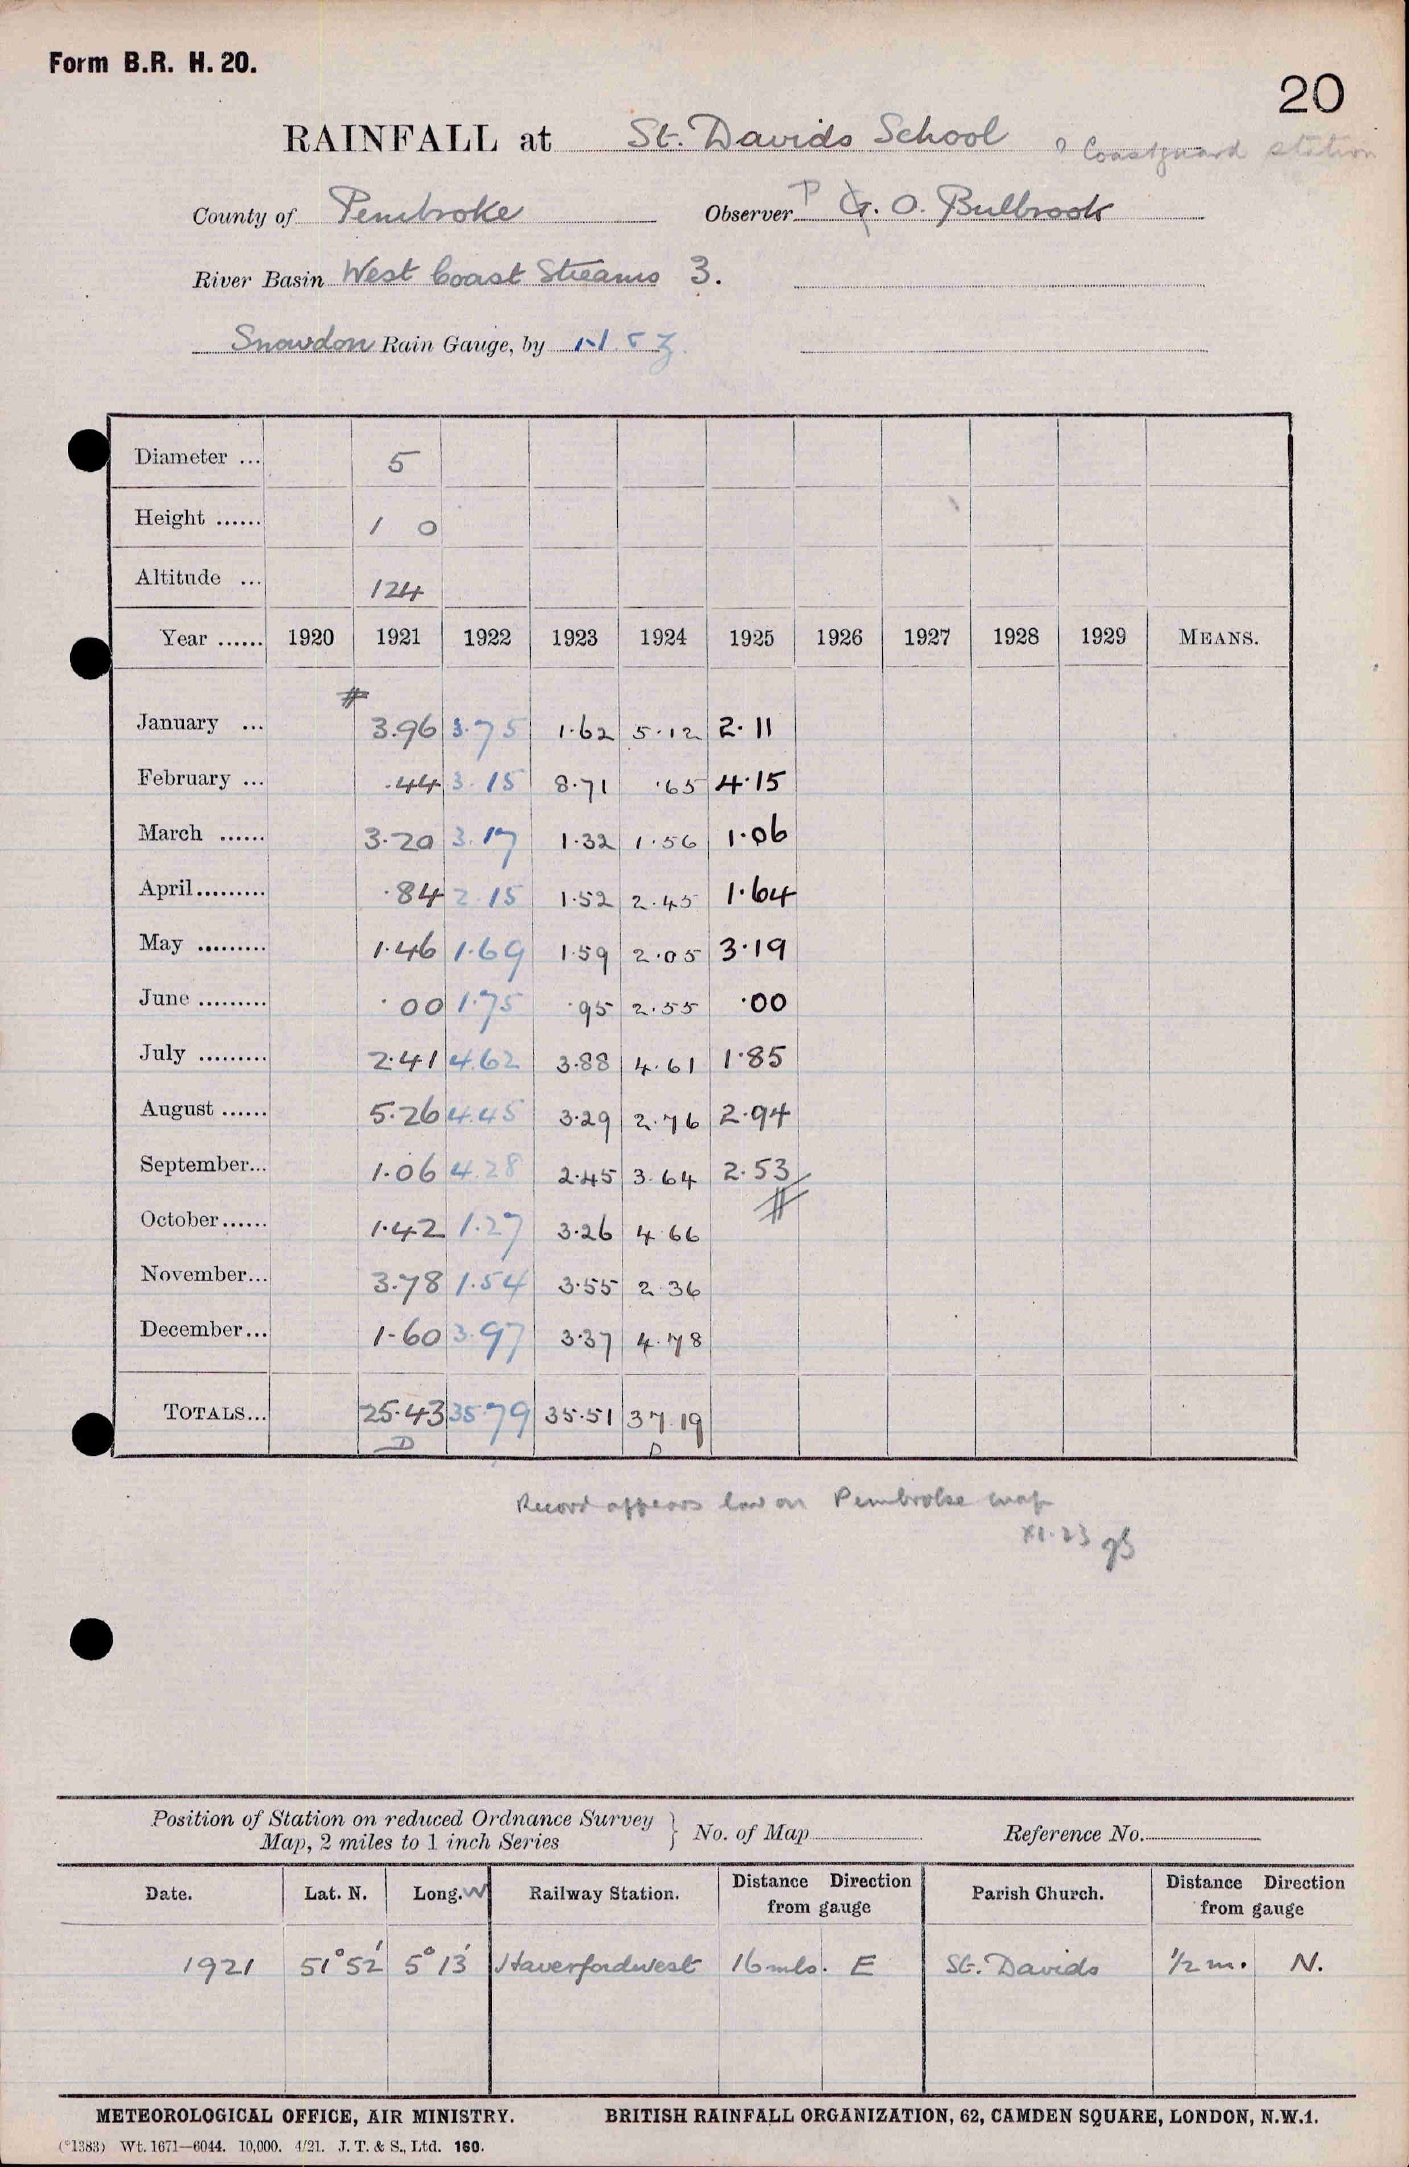 Form B.R. H. 20.
20
RAINFALL at St. Davids School ? Coastguard station
County of Pembroke Observer P G. O. Bulbrook
River Basin West Coast Streams 3.
Snowdon Rain Gauge, by
Diameter ... 5
Height ...... 1 0
Altitude ... 124
Year ...... 1920 1921 1922 1923 1924 1925 1926 1927 1928 1929 MEANS.
January ... 3.96 3.75 1.62 5.12 2.11
February ... .44 3.15 8.71 .65 4.15
March ...... 3.20 3.17 1.32 1.56 1.06
April......... .84 2.15 1.52 2.45 1.64
May ......... 1.46 1.69 1.59 2.05 3.19
June ......... .00 1.75 .95 2.55 .00
July ......... 2.41 4.62 3.88 4.61 1.85
August ...... 5.26 4.45 3.29 2.76 2.94
September... 1.06 4.28 2.45 3.64 2.53
October...... 1.42 1.27 3.26 4.66
November... 3.78 1.54 3.55 2.36
December... 1.60 3.97 3.37 4.78
TOTALS... 25.43 35.79 35.51 37.19
D D
Record appears low on Pembroke map
XI.23
Position of Station on reduced Ordnance Survey
Map, 2 miles to 1 inch Series } No. of Map Reference No.
Date. Lat. N. Long. W Railway Station. Distance Direction from gauge Parish Church. Distance Direction from gauge
1921 51° 52' 5° 13' Haverfordwest 16 mls. E St. Davids 1/2 m. N.
METEOROLOGICAL OFFICE, AIR MINISTRY. BRITISH RAINFALL ORGANIZATION, 62, CAMDEN SQUARE, LONDON, N.W.1.
(*1383) Wt. 1671—6044. 10,000. 4/21. J. T. & S., Ltd. 160.